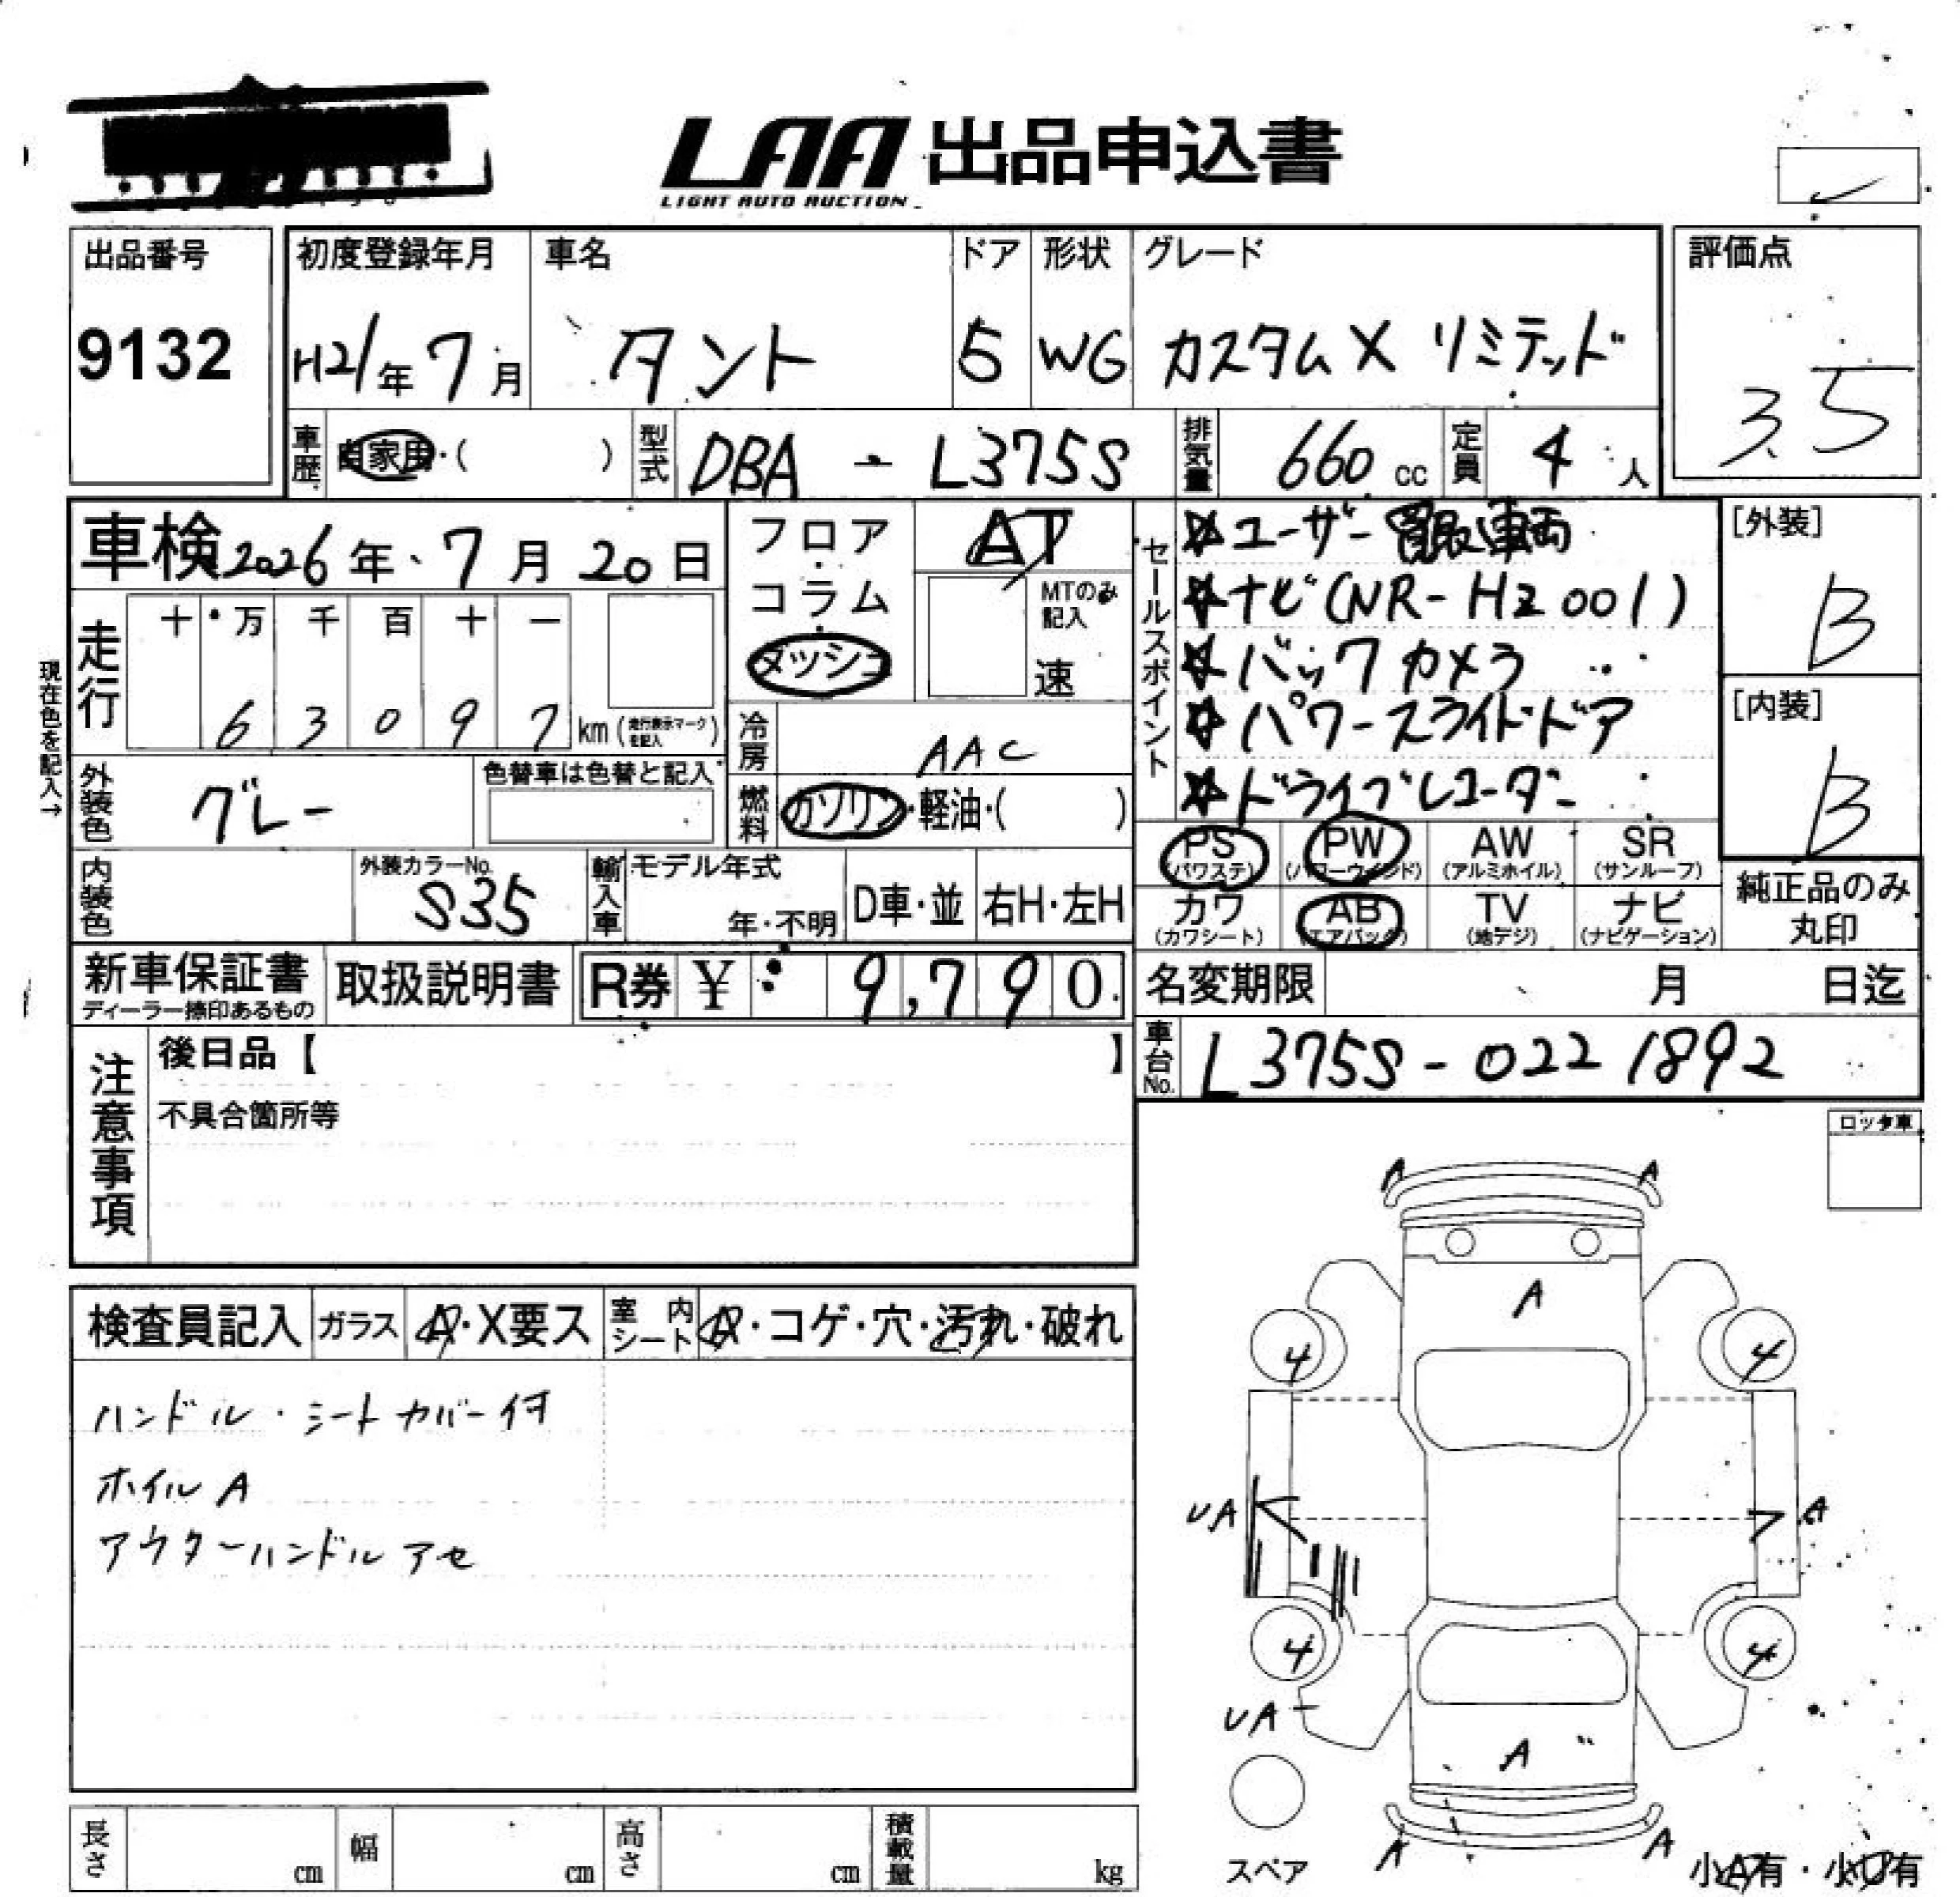 LAA 出品申込書
LIGHT AUTO AUCTION
出品番号
9132
初度登録年月
H21年 7月
車名
タント
ドア
5
形状
WG
グレード
カスタムX リミテッド
評価点
3.5
車歴
自家用・( )
型式
DBA - L375S
排気量
660 cc
定員
4 人
車検 2026年 7月 20日
フロア
コラム
メッシュ
AT
MTのみ記入
速
セールスポイント
☆ユーザー買取車両
☆ナビ(NR-HZ001)
☆バックカメラ
☆パワースライドドア
☆ドライブレコーダー
[外装]
B
[内装]
B
現在色を記入→
走行
十 万 千 百 十 一
6 3 0 9 7 km(走行表示マークを記入)
冷房
AAC
外装色
グレー
色替車は色替と記入
燃料
ガソリン・軽油・( )
PS (パワステ)
PW (パワーウインド)
AW (アルミホイル)
SR (サンルーフ)
カワ (カワシート)
AB (エアバック)
TV (地デジ)
ナビ (ナビゲーション)
純正品のみ
丸印
内装色
外装カラーNo.
S35
輸入車
モデル年式
年・不明
D車・並
右H・左H
新車保証書
ディーラー捺印あるもの
取扱説明書
R券 ¥ 9,790
名変期限 月 日迄
車台No.
L375S-0221892
注意事項
後日品【 】
不具合箇所等
ロッタ車
検査員記入
ガラス
A・X要ス
室内シート
A・コゲ・穴・汚れ・破れ
ハンドル・シートカバー付
ホイルA
アウターハンドルアセ
A A
A
4 4
UA A
4 4
UA
A
A A
スペア
小A有・小U有
長さ cm
幅 cm
高さ cm
積載量 kg